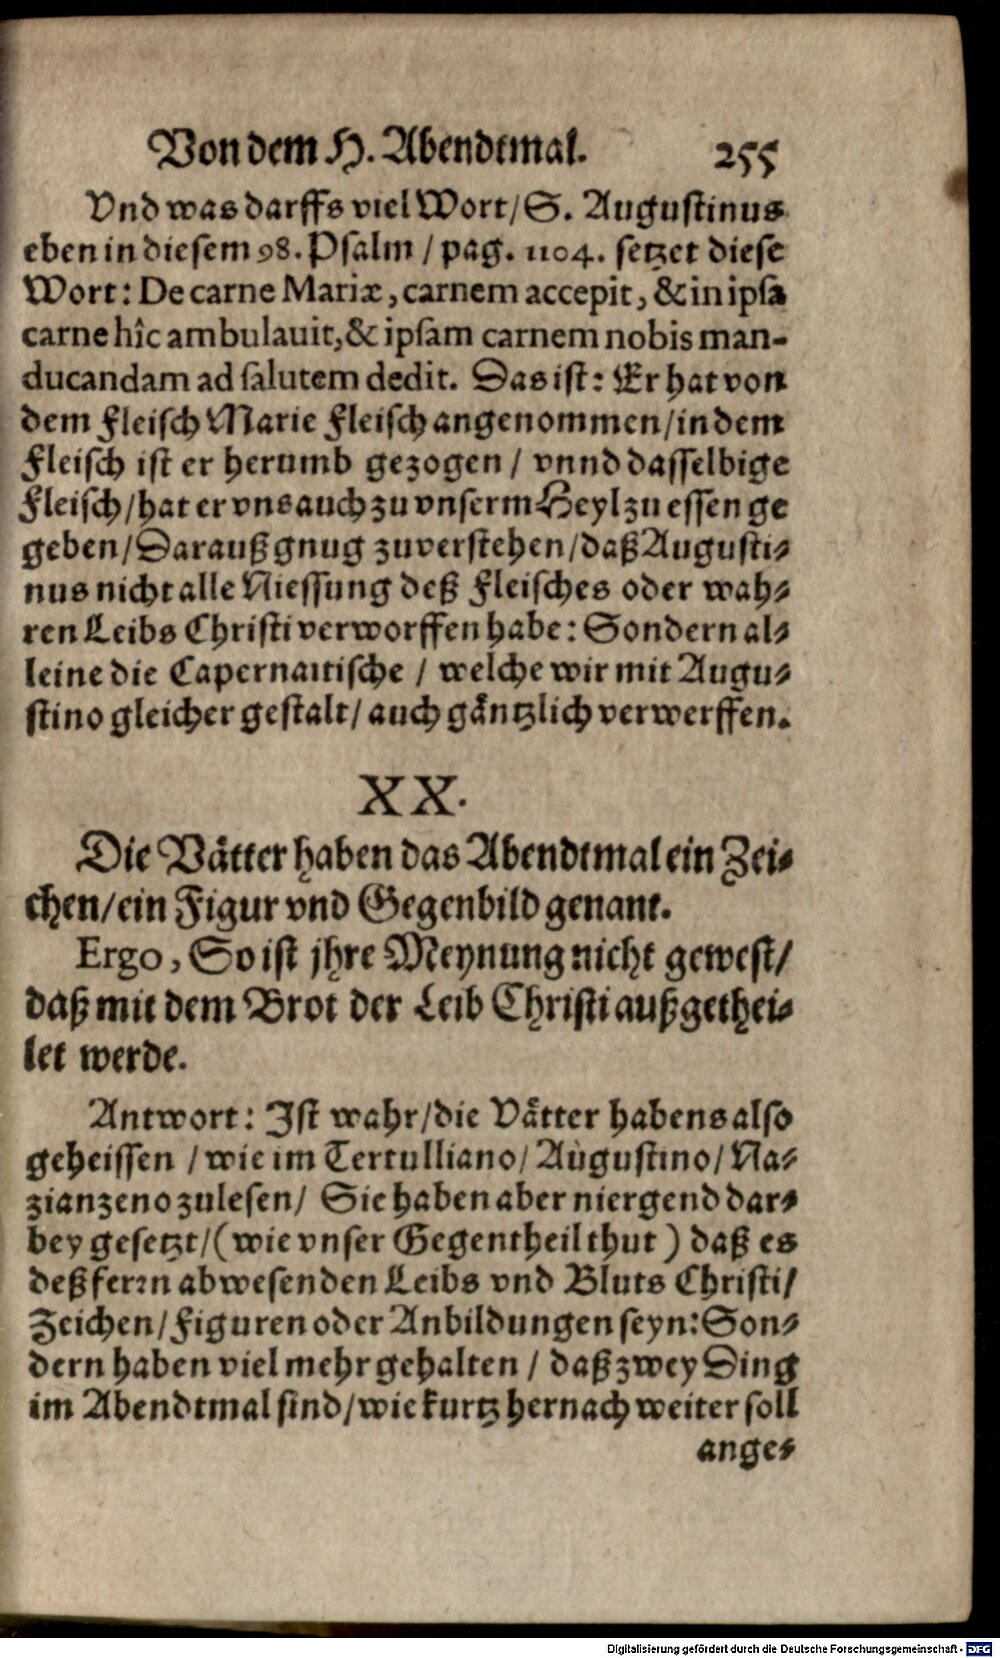 Von dem H. Abendtmal. 255
Vnd was darffs viel Wort/ S. Augustinus
eben in diesem 98. Psalm / pag. 1104. setzet diese
Wort: De carne Mariæ, carnem accepit, & in ipsa
carne hîc ambulauit, & ipsam carnem nobis man-
ducandam ad salutem dedit. Das ist: Er hat von
dem Fleisch Marie Fleisch angenommen/ in dem
Fleisch ist er herumb gezogen / vnnd dasselbige
Fleisch/ hat er vns auch zu vnserm Heyl zu essen ge
geben/ Darauß gnug zuverstehen/ daß Augusti-
nus nicht alle Niessung deß Fleisches oder wah-
ren Leibs Christi verworffen habe: Sondern al-
leine die Capernaitische / welche wir mit Augu-
stino gleicher gestalt/ auch gäntzlich verwerffen.
XX.
Die Vätter haben das Abendtmal ein Zei-
chen/ ein Figur vnd Gegenbild genant.
Ergo, So ist jhre Meynung nicht gewest/
daß mit dem Brot der Leib Christi außgethei-
let werde.
Antwort: Ist wahr/ die Vätter habens also
geheissen / wie im Tertulliano/ Augustino/ Na-
zianzeno zulesen/ Sie haben aber niergend dar-
bey gesetzt/ (wie vnser Gegentheil thut) daß es
deß ferrn abwesenden Leibs vnd Bluts Christi/
Zeichen/ Figuren oder Anbildungen seyn: Son-
dern haben viel mehr gehalten / daß zwey Ding
im Abendtmal sind/ wie kurtz hernach weiter soll
ange-
Digitalisierung gefördert durch die Deutsche Forschungsgemeinschaft - DFG